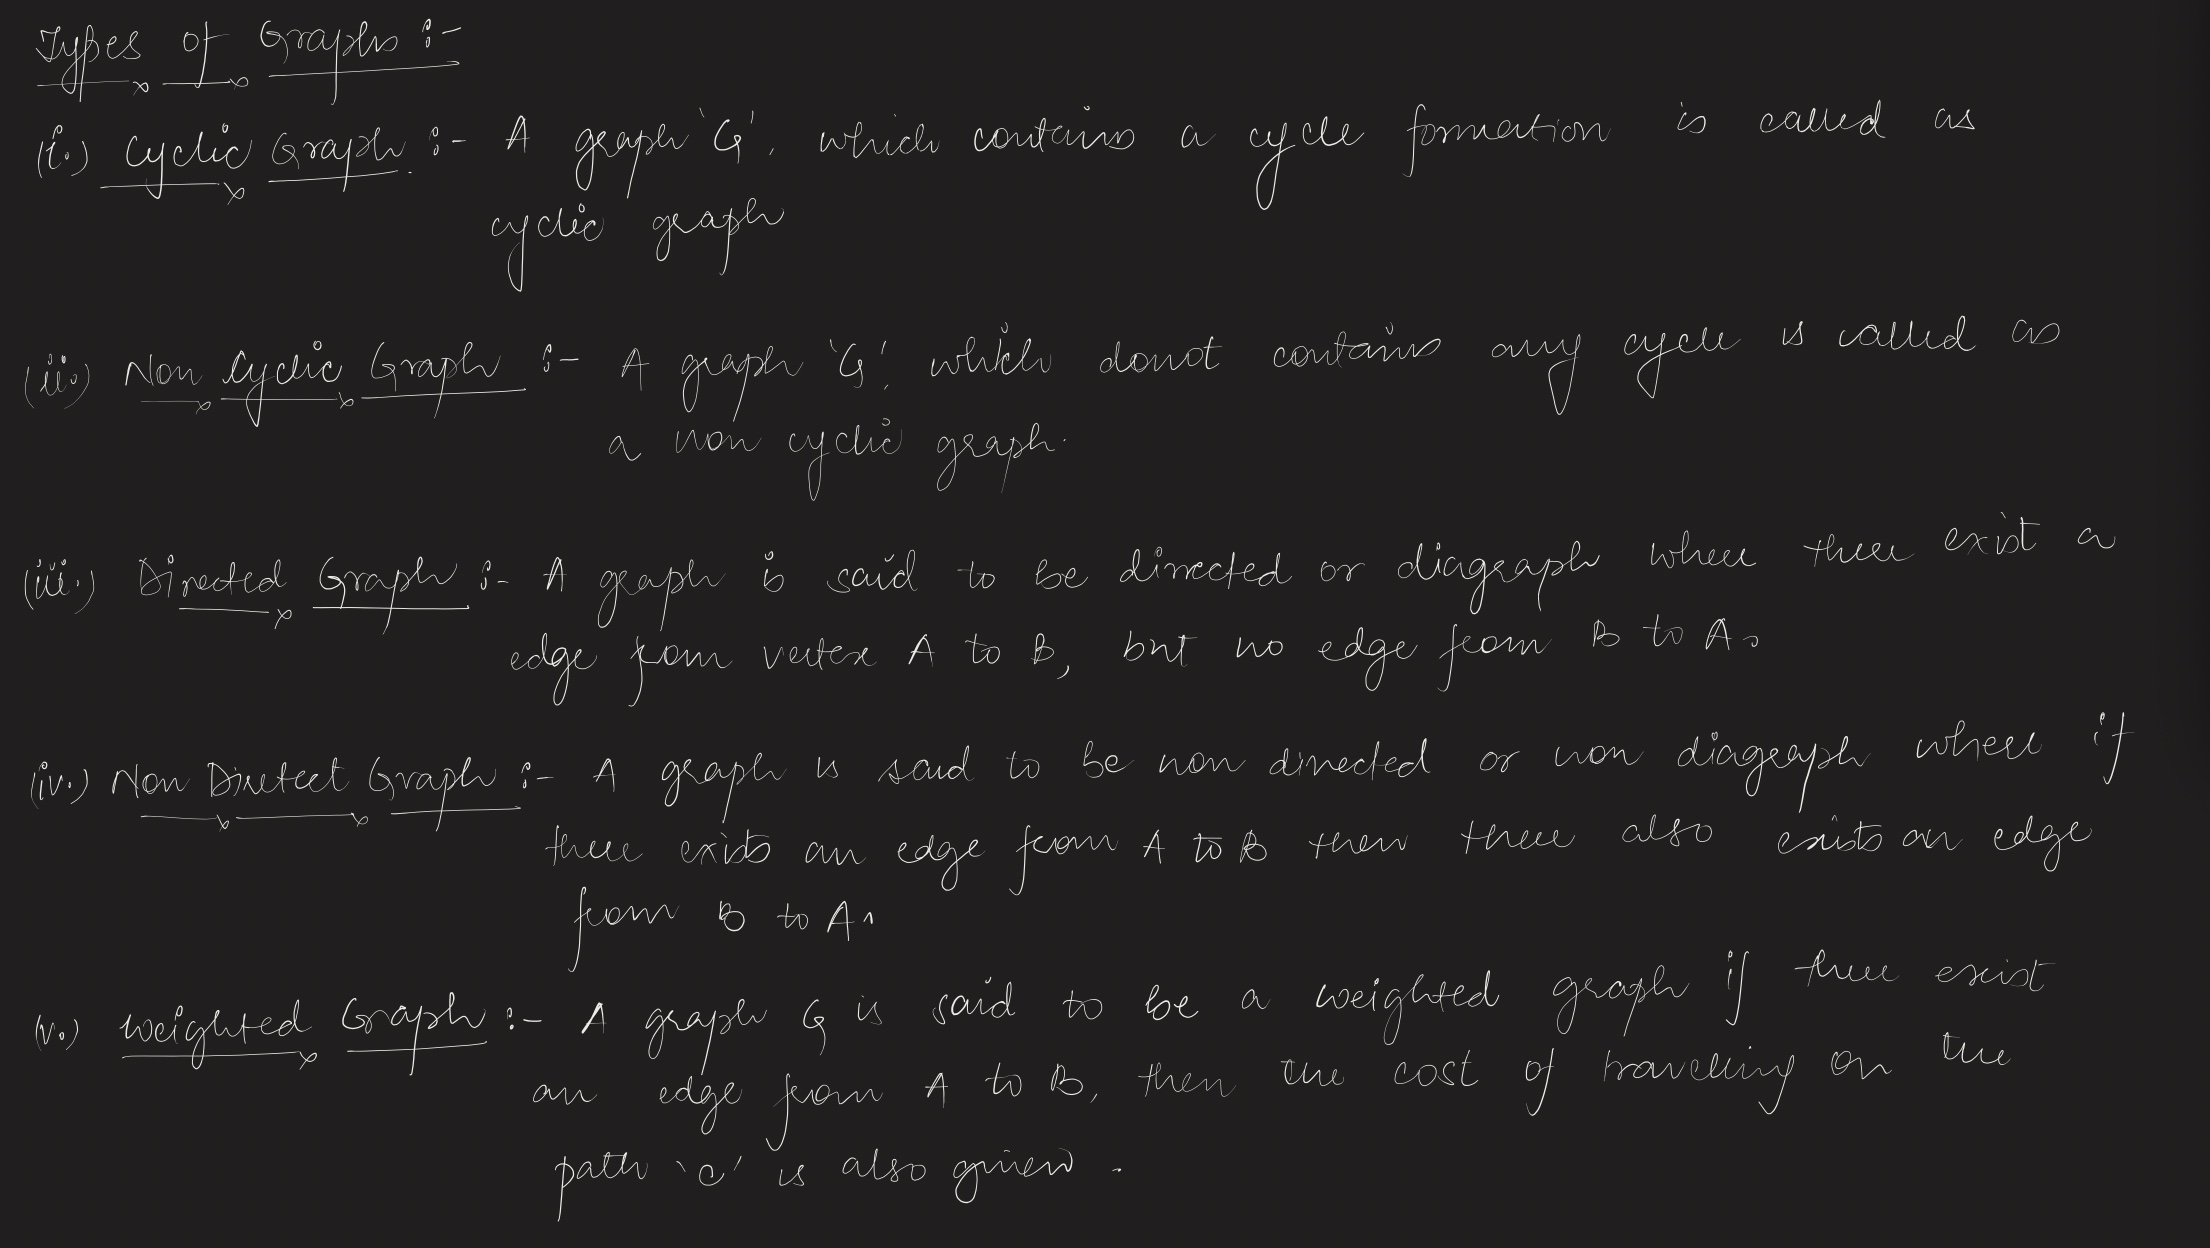 Types of Graphs :-
(i.) Cyclic Graph :- A graph 'G', which contains a cycle formation is called as
cyclic graph
(ii.) Non Cyclic Graph :- A graph 'G', which donot contains any cycle is called as
a non cyclic graph.
(iii.) Directed Graph :- A graph is said to be directed or diagraph where there exist a
edge from vertex A to B, but no edge from B to A.
(iv.) Non Directect Graph :- A graph is said to be non directed or non diagraph where if
there exists an edge from A to B then there also exists an edge
from B to A.
(v.) Weighted Graph :- A graph G is said to be a weighted graph if there exist
an edge from A to B, then the cost of travelling on the
path 'c' is also given.